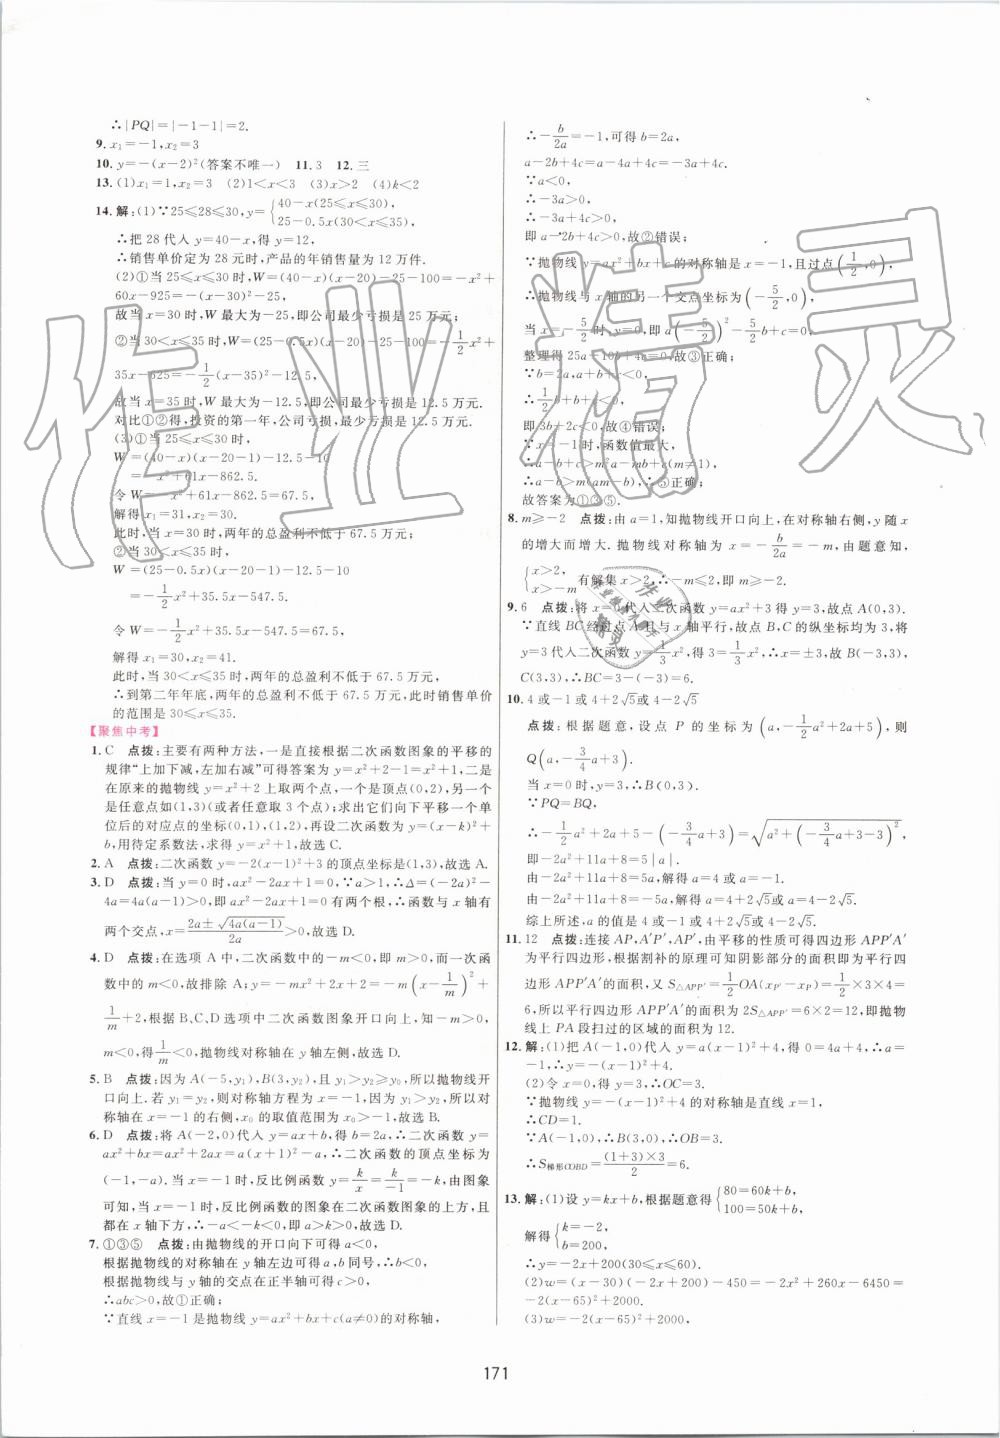 ∴|PQ|=|-1-1|=2.
9. x₁=-1,x₂=3
10. y=-(x-2)²(答案不唯一) 11. 3 12. 三
13. (1)x₁=1,x₂=3 (2)1<x<3 (3)x>2 (4)k<2
14. 解:(1)∵25≤28≤30,y={40-x(25≤x≤30)
25-0.5x(30<x≤35),
∴把 28 代入 y=40-x,得 y=12,
∴销售单价定为 28 元时,产品的年销售量为 12 万件.
(2)①当 25≤x≤30 时,W=(40-x)(x-20)-25-100=-x²+
60x-925=-(x-30)²-25,
故当 x=30 时,W 最大为-25,即公司最少亏损是 25 万元;
②当 30<x≤35 时,W=(25-0.5x)(x-20)-25-100=-1/2x²+
35x-625=-1/2(x-35)²-12.5,
故当 x=35 时,W 最大为-12.5,即公司最少亏损是 12.5 万元.
对比①②得,投资的第一年,公司亏损,最少亏损是 12.5 万元.
(3)①当 25≤x≤30 时,
W=(40-x)(x-20-1)-12.5-10
=-x²+61x-862.5.
令 W=-x²+61x-862.5=67.5,
解得 x₁=31,x₂=30.
此时,当 x=30 时,两年的总盈利不低于 67.5 万元;
②当 30<x≤35 时,
W=(25-0.5x)(x-20-1)-12.5-10
=-1/2x²+35.5x-547.5.
令 W=-1/2x²+35.5x-547.5=67.5,
解得 x₁=30,x₂=41.
此时,当 30≤x≤35 时,两年的总盈利不低于 67.5 万元,
∴到第二年年底,两年的总盈利不低于 67.5 万元,此时销售单价
的范围是 30≤x≤35.
【聚焦中考】
1. C 点拨:主要有两种方法,一是直接根据二次函数图象的平移的
规律“上加下减,左加右减”可得答案为 y=x²+2-1=x²+1,二是
在原来的抛物线 y=x²+2 上取两个点,一个是顶点(0,2),另一个
是任意点如(1,3)(或者任意取 3 个点);求出它们向下平移一个单
位后的对应点的坐标(0,1),(1,2),再设二次函数为 y=(x-k)²+
b,用待定系数法,求得 y=x²+1,故选 C.
2. A 点拨:二次函数 y=-2(x-1)²+3 的顶点坐标是(1,3),故选 A.
3. D 点拨:当 y=0 时,ax²-2ax+1=0,∵a>1,∴Δ=(-2a)²-
4a=4a(a-1)>0,即 ax²-2ax+1=0 有两个根,∴函数与 x 轴有
两个交点,x=(2a±√(4a(a-1)))/2a>0,故选 D.
4. D 点拨:在选项 A 中,二次函数中的-m<0,即 m>0,而一次函
数中的 m<0,故排除 A;y=-mx²+2x+2=-m(x-1/m)²+
1/m+2,根据 B、C、D 选项中二次函数图象开口向上,知-m>0,
m<0,得1/m<0,则抛物线对称轴在 y 轴左侧,故选 D.
5. B 点拨:因为 A(-5,y₁),B(3,y₂),且 y₁>y₂≥y₀,所以抛物线开
口向上.若 y₁=y₂,则对称轴方程为 x=-1,因为 y₁>y₂,所以对
称轴在 x=-1 的右侧,x₀ 的取值范围为 x₀>-1,故选 B.
6. D 点拨:将 A(-2,0)代入 y=ax+b,得 b=2a,∴二次函数 y=
ax²+bx=ax²+2ax=a(x+1)²-a,∴二次函数的顶点坐标为
(-1,-a).当 x=-1 时,反比例函数 y=k/x=k/-1=-k,由图象
可知,当 x=-1 时,反比例函数的图象在二次函数图象的上方,且
都在 x 轴下方,∴-a<-k<0,即 a>k>0,故选 D.
7. ①③⑤ 点拨:由抛物线的开口向下可得 a<0,
根据抛物线的对称轴在 y 轴左边可得 a,b 同号,∴b<0,
根据抛物线与 y 轴的交点在正半轴可得 c>0,
∴abc>0,故①正确;
∵直线 x=-1 是抛物线 y=ax²+bx+c(a≠0)的对称轴,
∴-b/2a=-1,可得 b=2a,
a-2b+4c=a-4a+4c=-3a+4c.
∵a<0,
∴-3a>0,
∴-3a+4c>0,
即 a-2b+4c>0,故②错误;
∵抛物线 y=ax²+bx+c 的对称轴是 x=-1,且过点(1/2,0),
∴抛物线与 x 轴的另一个交点坐标为(-5/2,0),
当 x=-5/2时,y=0,即 a(-5/2)²-5/2b+c=0,
整理得 25a-10b+4c=0,故③正确;
∵b=2a,a+b+c<0,
∴1/2b+b+c<0,
即 3b+2c<0,故④错误;
∵x=-1 时,函数值最大,
∴a-b+c>m²a-mb+c(m≠1),
∴a-b>m(am-b),∴⑤正确;
故答案为①③⑤.
8. m≥-2 点拨:由 a=1,知抛物线开口向上,在对称轴右侧,y 随 x
的增大而增大.抛物线对称轴为 x=-b/2a=-m,由题意知,
{x>2,
x>-m 有解集 x>2,∴-m≤2,即 m≥-2.
9. 6 点拨:将 x=0 代入二次函数 y=ax²+3 得 y=3,故点 A(0,3).
∵直线 BC 经过点 A 且与 x 轴平行,故点 B,C 的纵坐标均为 3,将
y=3 代入二次函数 y=1/3x²,得 3=1/3x²,∴x=±3,故 B(-3,3),
C(3,3),∴BC=3-(-3)=6.
10. 4 或-1 或 4+2√5或 4-2√5
点拨:根据题意,设点 P 的坐标为(a,-1/2a²+2a+5),则
Q(a,-3/4a+3).
当 x=0 时,y=3,∴B(0,3).
∵PQ=BQ,
∴-1/2a²+2a+5-(-3/4a+3)=√(a²+(-3/4a+3-3)²),
即-2a²+11a+8=5|a|.
由-2a²+11a+8=5a,解得 a=4 或 a=-1.
由-2a²+11a+8=-5a,解得 a=4+2√5或 a=4-2√5
综上所述,a 的值是 4 或-1 或 4+2√5或 4-2√5.
11. 12 点拨:连接 AP,A′P′,AP′,由平移的性质可得四边形 APP′A′
为平行四边形,根据割补的原理可知阴影部分的面积即为平行四
边形 APP′A′的面积,又 S△APP′=1/2OA(xP′-xP)=1/2×3×4=
6,所以平行四边形 APP′A′的面积为 2S△APP′=6×2=12,即抛物
线上 PA 段扫过的区域的面积为 12.
12. 解:(1)把 A(-1,0)代入 y=a(x-1)²+4,得 0=4a+4,∴a=
-1,∴y=-(x-1)²+4.
(2)令 x=0,得 y=3,∴OC=3.
∵抛物线 y=-(x-1)²+4 的对称轴是直线 x=1,
∴CD=1.
∵A(-1,0),∴B(3,0),∴OB=3.
∴S梯形COBD=(1+3)×3/2=6.
13. 解:(1)设 y=kx+b,根据题意得{80=60k+b,
100=50k+b,
解得{k=-2,
b=200,
∴y=-2x+200(30≤x≤60).
(2)w=(x-30)(-2x+200)-450=-2x²+260x-6450=
-2(x-65)²+2000.
(3)w=-2(x-65)²+2000,
171
作业精灵